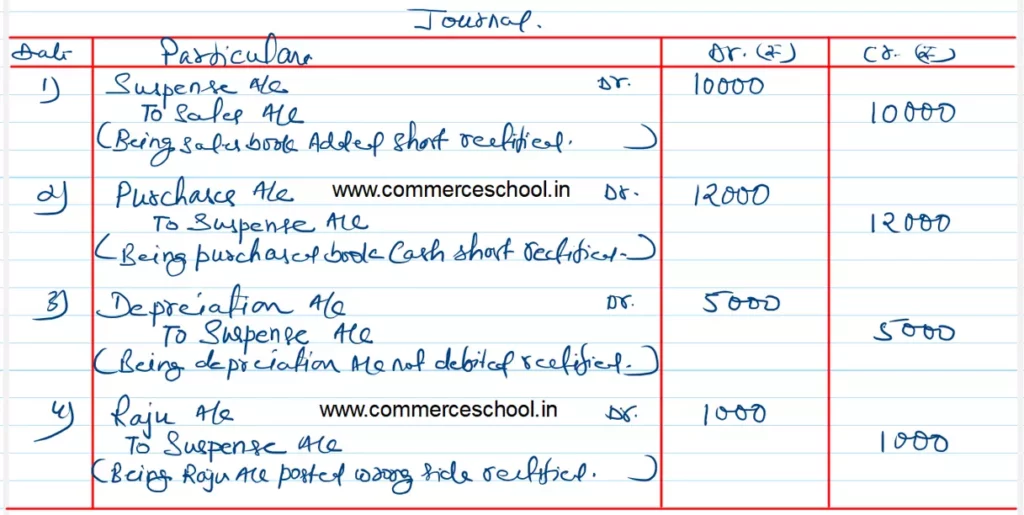 Journal.
Date Particulars Dr. (₹) Cr. (₹)
1) Suspense A/c Dr. 10000
To Sales A/c 10000
(Being sales book Added short rectified. )
2) Purchases A/c www.commerceschool.in Dr. 12000
To Suspense A/c 12000
(Being purchased book Cash short rectified.)
3) Depreciation A/c Dr. 5000
To Suspense A/c 5000
(Being depreciation A/c not debited rectified.)
4) Raju A/c www.commerceschool.in Dr. 1000
To Suspense A/c 1000
(Being Raju A/c posted wrong side rectified. )